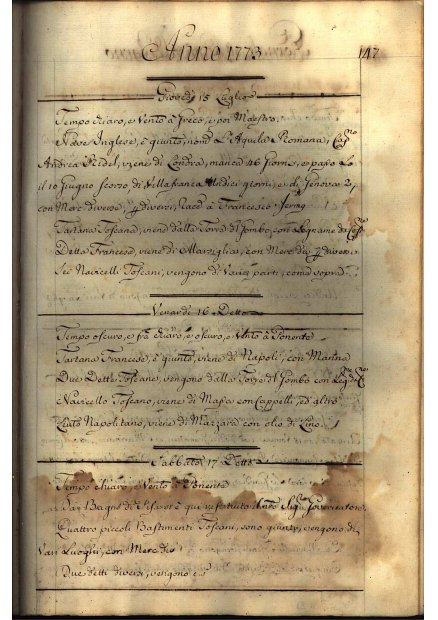 Anno 1773
147
Giovedi 15 Luglio
Tempo chiaro, e Vento à Greco, e poi Maestro.
Nave Inglese, è giunta, nom.ª L'Aquila Romana, Cap.no
Andrea Riedel, viene di Londra, manca 46 Giorni, e passò Lo
il 10 Giugno scorso, di Villafranca Undici giorni, e di Genova 2,
con Merc. diverse, p. diversi, racc. à Francesco
Tartana Toscana, viene dalla Torre di Jombo, con Legname da
Detta Francese, viene di Marziglia, con Merc. div. p. diversi
Sei Navicelli Toscani, vengono di Varie parti, come sopra
Venardi 16 Detto
Tempo oscuro, e frà chiaro, e oscuro, e Vento à Ponente
Tartana Francese, è giunta, viene di Napoli, con Manna
Due Dette Toscane, vengono dalla Torre del Jombo con
Navicello Toscano, viene di Massa con Cappelli, ed altro
Leuto Napolitano, viene di Mazzara con olio di Lino.
Sabbato 17 Detto
Tempo chiaro, e Vento à Ponente
Da Bagni di Pisa è qui restituito Governatore
Quattro piccoli Bastimenti Toscani, sono giunti, vengono di
Varj Luoghi, con Merc. die
Due detti diversi, vengono